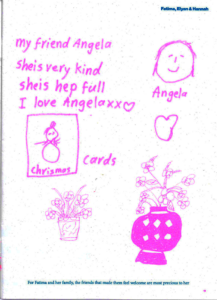 Fatima, Elyon & Hannah
my friend Angela
sheis very kind
sheis hep full
I love Angelaxx
Angela
chrismas
cards
For Fatima and her family, the friends that made them feel welcome are most precious to her